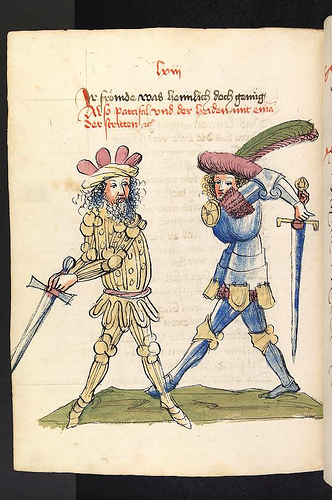 lxvij
Ir frömde was heimlich doch genüg
Also partzifal vnd der heiden mit eina
der stritten